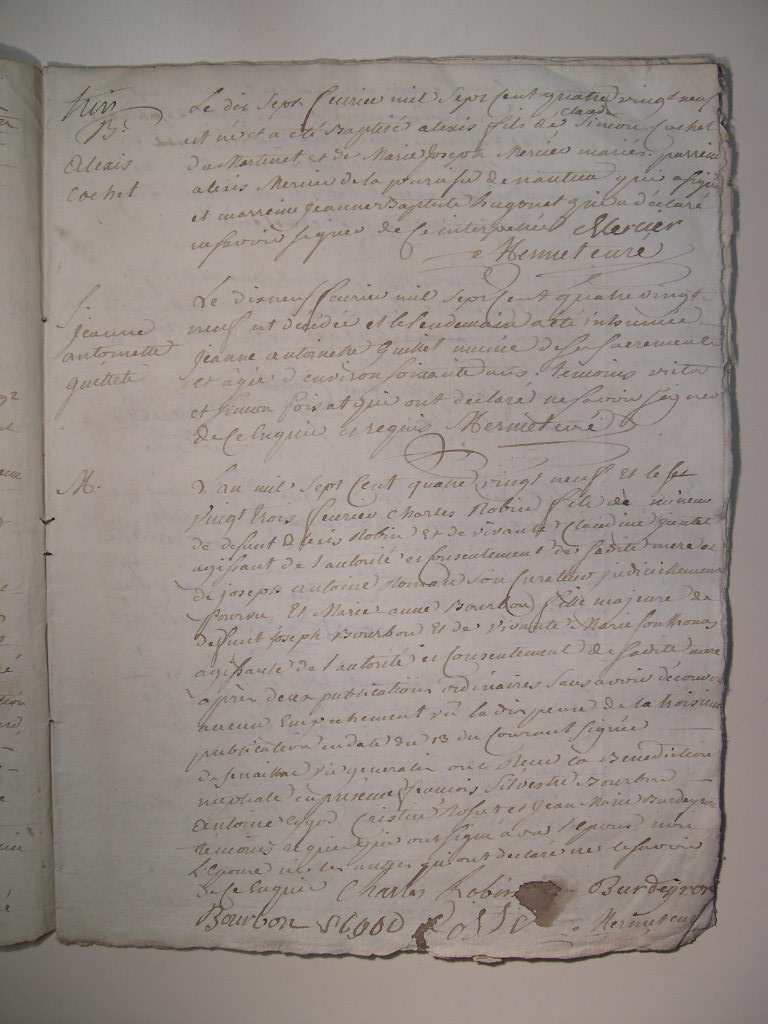 Bt
Alexis
Cochet
Le dix sept fevrier mil sept cent quatre vingt neuf
claude
est né et a été Baptisé alexis fils de Simon Cochet
du Martinet et de Marie Joseph Mercier mariés. parrein
alexis Mercier de la paroisse de nantua qui a signé
et marreine Jeanne Baptiste hugonet qui a déclaré
ne savoir signer de ce interpellée Mercier
S.
Jeanne
antoinette
Le dix neuf fevrier mil sept cent quatre vingt
neuf est décédée et le lendemain a été inhumée
Jeanne antoinette munie de ses sacrements
et âgée d'environ soixante ans. temoins
et Simon qui ont déclaré ne savoir signer
de ce enquis et requis
M.
L'an mil sept cent quatre vingt neuf et le
vingt trois fevrier Charles Robin fils mineur
de defunt Alexis Robin et de vivante Claudine
agissant de l'autorité et consentement de sadite mere et
de joseph antoine son curateur judiciellement
pourvu Et Marie anne Bourbon fille majeure de
defunt Joseph Bourbon et de vivante Marie
agissante de l'autorité et consentement de sadite mere
après deux publications ordinaires sans avoir découvert
aucun Empechement vu la dispense de la troisieme
publication en date du 13 du courant signée
de vic general ont Reçu la Benediction
nuptiale en présence de francois Silvestre Bourbon
antoine et Jean Marie Burdeyron
temoins requis qui ont signé avec l'Epoux non
l'Epouse les autres qui ont déclaré ne le savoir
de ce Enquis Charles Robin Burdeyron
Bourbon